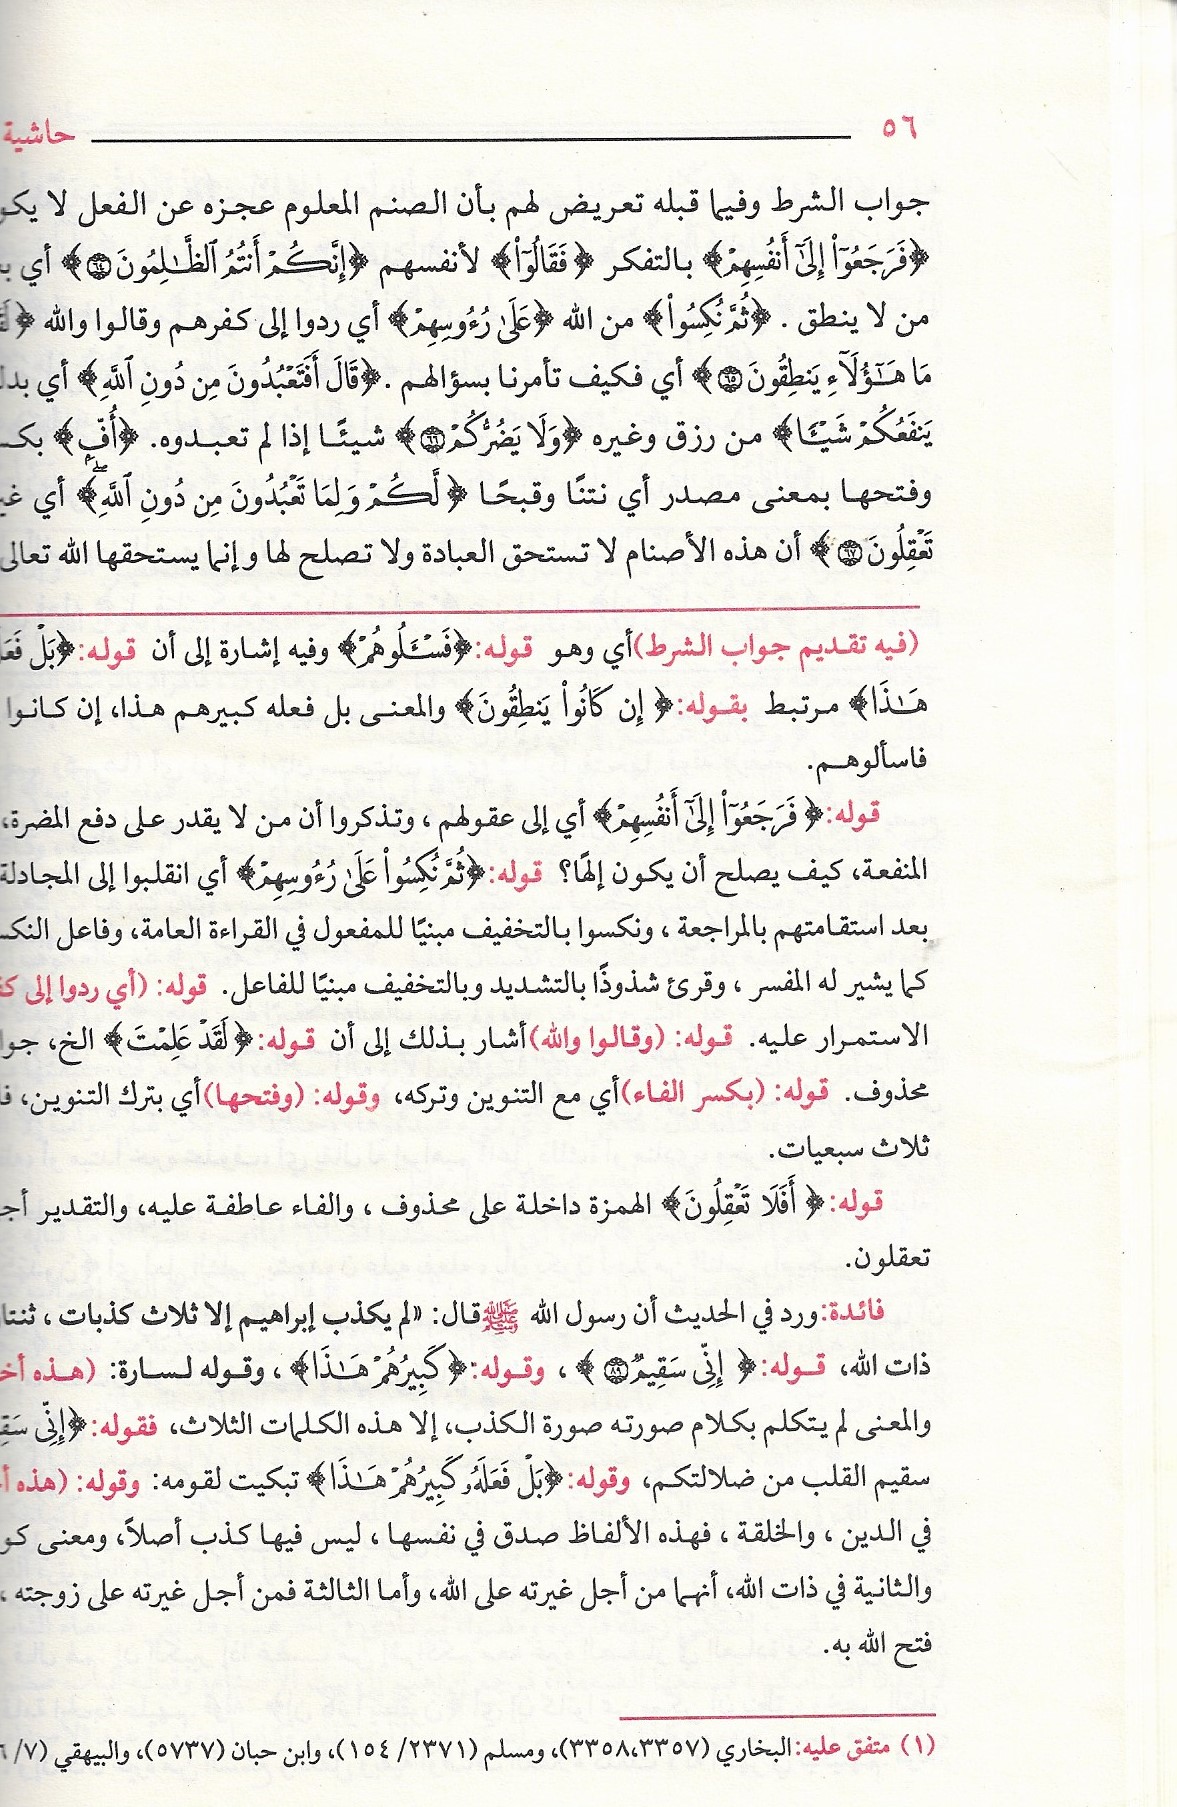 ٥٦ حاشية
جواب الشرط وفيما قبله تعريض لهم بأن الصنم المعلوم عجزه عن الفعل لا
﴿فَرَجَعُوٓا۟ إِلَىٰٓ أَنفُسِهِمْ﴾ بالتفكر ﴿فَقَالُوٓا۟﴾ لأنفسهم ﴿إِنَّكُمْ أَنتُمُ ٱلظَّـٰلِمُونَ ٦٤﴾ أي
من لا ينطق . ﴿ثُمَّ نُكِسُوا۟﴾ من الله ﴿عَلَىٰ رُءُوسِهِمْ﴾ أي ردوا إلى كفرهم وقالوا والله
مَا هَـٰٓؤُلَآءِ يَنطِقُونَ ٦٥﴾ أي فكيف تأمرنا بسؤالهم . ﴿قَالَ أَفَتَعْبُدُونَ مِن دُونِ ٱللَّهِ﴾ أي
يَنفَعُكُمْ شَيْـًٔا﴾ من رزق وغيره ﴿وَلَا يَضُرُّكُمْ ٦٦﴾ شيئًا إذا لم تعبدوه. ﴿أُفٍّ﴾
وفتحها بمعنى مصدر أي نتنًا وقبحًا ﴿لَّكُمْ وَلِمَا تَعْبُدُونَ مِن دُونِ ٱللَّهِ﴾ أي
تَعْقِلُونَ ٦٧﴾ أن هذه الأصنام لا تستحق العبادة ولا تصلح لها وإنما يستحقها الله تعالى
(فيه تقديم جواب الشرط) أي وهو قوله: ﴿فَسْـَٔلُوهُمْ﴾ وفيه إشارة إلى أن قوله: ﴿بَلْ
هَـٰذَا﴾ مرتبط بقوله: ﴿إِن كَانُوا۟ يَنطِقُونَ﴾ والمعنى بل فعله كبيرهم هذا، إن كانوا
فاسألوهم.
قوله: ﴿فَرَجَعُوٓا۟ إِلَىٰٓ أَنفُسِهِمْ﴾ أي إلى عقولهم ، وتذكروا أن من لا يقدر على دفع المضرة،
المنفعة، كيف يصلح أن يكون إلهًا؟ قوله: ﴿ثُمَّ نُكِسُوا۟ عَلَىٰ رُءُوسِهِمْ﴾ أي انقلبوا إلى المجادلة
بعد استقامتهم بالمراجعة ، ونكسوا بالتخفيف مبنيًا للمفعول في القراءة العامة، وفاعل
كما يشير له المفسر ، وقرئ شذوذًا بالتشديد وبالتخفيف مبنيًا للفاعل. قوله: (أي ردوا إلى
الاستمرار عليه. قوله: (وقالوا والله) أشار بذلك إلى أن قوله: ﴿لَقَدْ عَلِمْتَ﴾ الخ،
محذوف. قوله: (بكسر الفاء) أي مع التنوين وتركه، وقوله: (وفتحها) أي بترك التنوين،
ثلاث سبعيات.
قوله: ﴿أَفَلَا تَعْقِلُونَ﴾ الهمزة داخلة على محذوف ، والفاء عاطفة عليه، والتقدير
تعقلون.
فائدة: ورد في الحديث أن رسول الله ﷺ قال: «لم يكذب إبراهيم إلا ثلاث كذبات ،
ذات الله، قوله: ﴿إِنِّى سَقِيمٌ ٨٩﴾ ، وقوله: ﴿كَبِيرُهُمْ هَـٰذَا﴾ ، وقوله لسارة: (هذه
والمعنى لم يتكلم بكلام صورته صورة الكذب، إلا هذه الكلمات الثلاث، فقوله: ﴿إِنِّى
سقيم القلب من ضلالتكم، وقوله: ﴿بَلْ فَعَلَهُۥ كَبِيرُهُمْ هَـٰذَا﴾ تبكيت لقومه: وقوله: (هذه
في الدين ، والخلقة ، فهذه الألفاظ صدق في نفسها ، ليس فيها كذب أصلاً، ومعنى
والثانية في ذات الله، أنهما من أجل غيرته على الله، وأما الثالثة فمن أجل غيرته على زوجته ،
فتح الله به.
(١) متفق عليه: البخاري (٣٣٥٨،٣٣٥٧)، ومسلم (٢٣٧١/ ١٥٤)، وابن حبان (٥٧٣٧)، والبيهقي (٧/